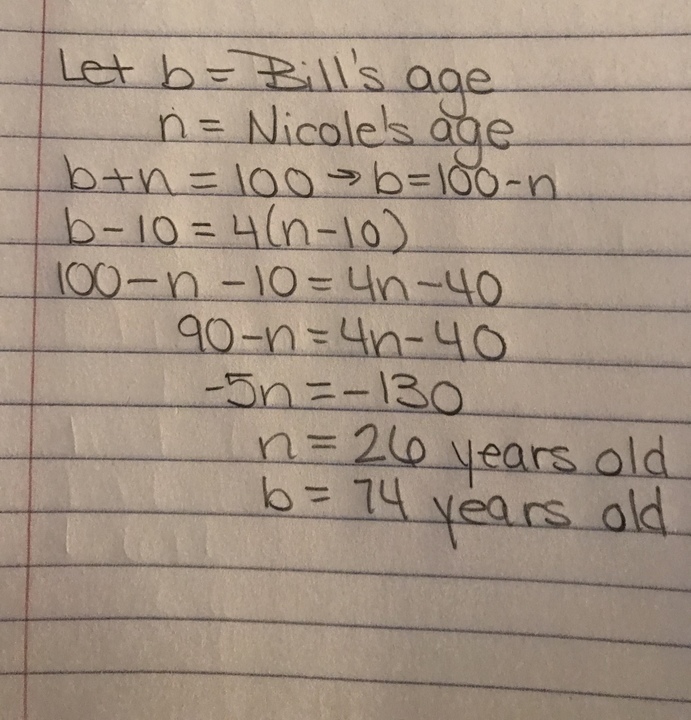 Let b = Bill's age
n = Nicole's age
b+n = 100 → b=100-n
b-10 = 4(n-10)
100-n-10 = 4n-40
90-n = 4n-40
-5n = -130
n = 26 years old
b = 74 years old